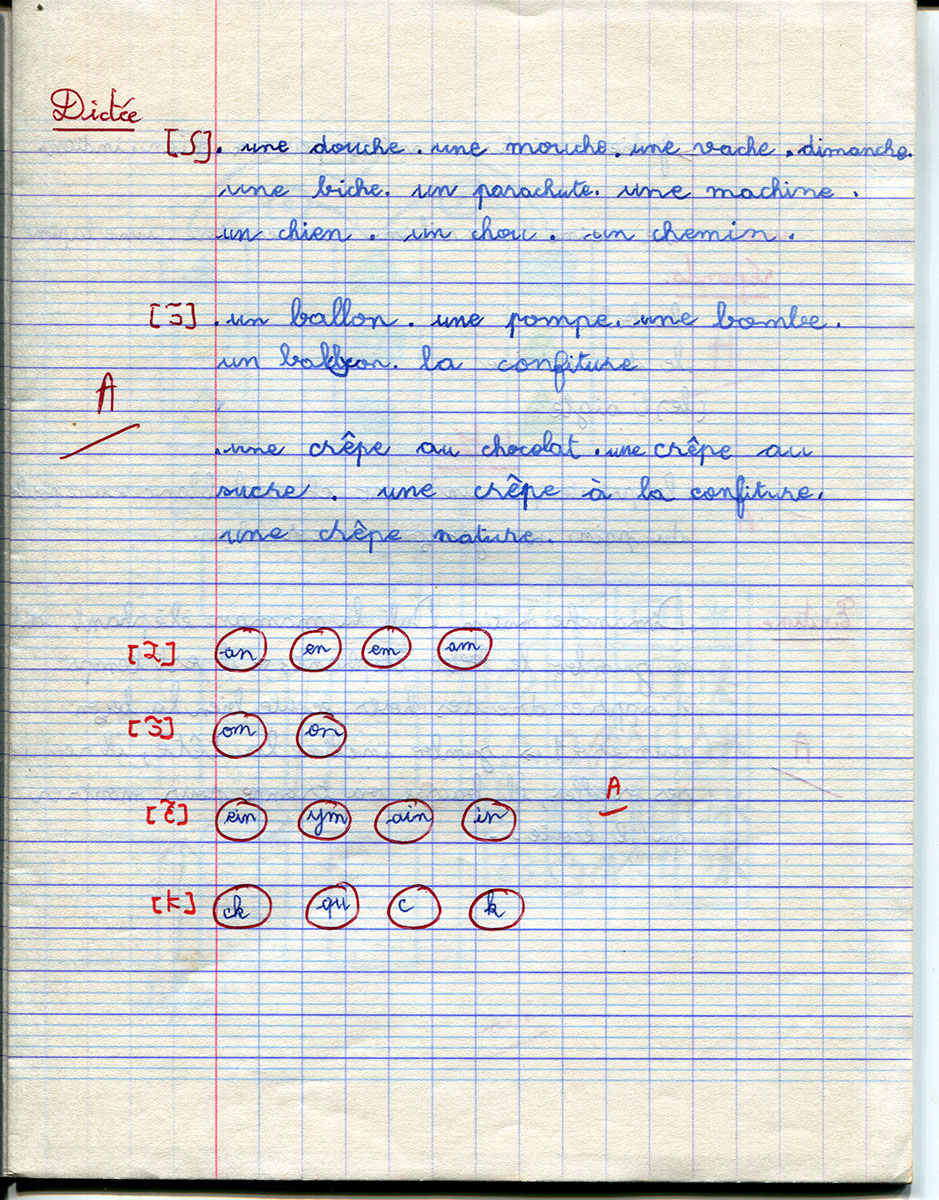 Dictée
[ʃ]. une douche. une mouche. une vache. dimanche.
une biche. un parachute. une machine.
un chien. un chou. un chemin.
[ɔ̃]. un ballon. une pompe. une bombe.
un balcon. la confiture
A
. une crêpe au chocolat. une crêpe au
sucre. une crêpe à la confiture.
une crêpe nature.
[ɑ̃] an en em am
[ɔ̃] om on
[ɛ̃] ein ym ain in
A
[k] ck qu c k